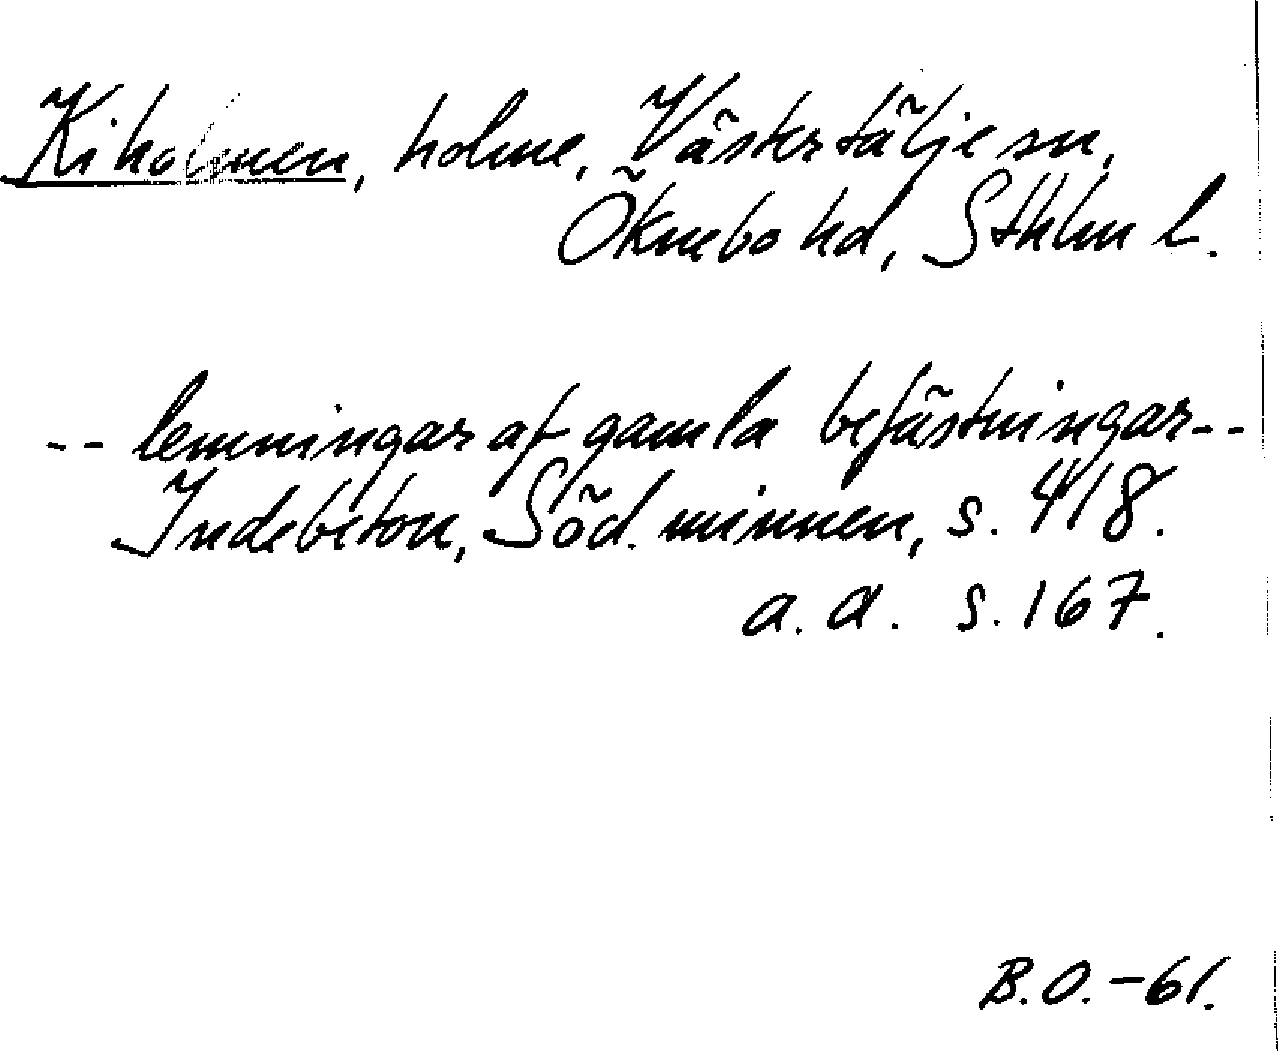 Kiholmen, holme, Västertälje sn,
Öknebo hd, Sthlm l.
-- lemningar af gamla befästningar--
Indebetou, Söd. minnen, s. 418.
a. a. s. 167.
B.O.-61.